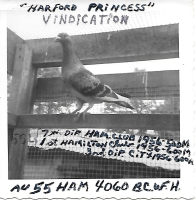 "HARFORD PRINCESS"
VINDICATION
7TH DIP HAM CLUB 1956-500M
1st HAMILTON CLUB 1956-600M
2nd DIP CITY 1956-600M
AU 55 HAM 4060 B.C.W.F.H.